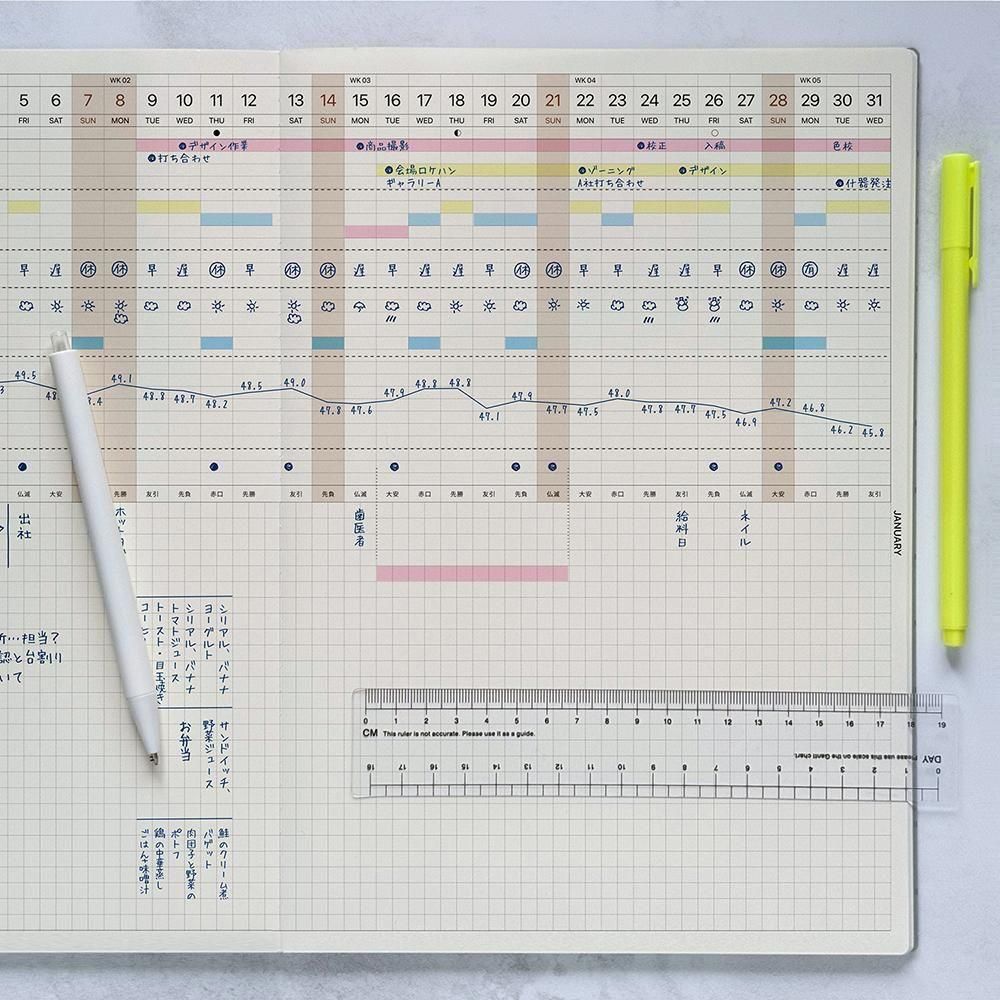 WK 02 WK 03 WK 04 WK 05
5 6 7 8 9 10 11 12 13 14 15 16 17 18 19 20 21 22 23 24 25 26 27 28 29 30 31
FRI SAT SUN MON TUE WED THU FRI SAT SUN MON TUE WED THU FRI SAT SUN MON TUE WED THU FRI SAT SUN MON TUE WED
デザイン作業 商品撮影 校正 入稿 色校
打ち合わせ
会場ロケハン ゾーニング デザイン
ギャラリーA A社打ち合わせ 什器発注
早 遅 休 休 早 遅 休 早 休 休 遅 早 遅 遅 早 休 休 遅 早 遅 遅 早 休 休 有 遅 遅
49.5 49.1 48.8 48.7 48.2 48.5 49.0 47.8 47.6 47.9 48.8 48.8 47.1 47.9 47.7 47.5 48.0 47.8 47.7 47.5 46.9 47.2 46.8 46.2 45.8
仏滅 大安 先勝 友引 先負 赤口 先勝 友引 先負 仏滅 大安 赤口 先勝 友引 先負 仏滅 大安 赤口 先勝 友引 先負 仏滅 大安 赤口 先勝 友引
出社
歯医者
給料日
ネイル
JANUARY
シリアル、バナナ
ヨーグルト
シリアル、バナナ
トマトジュース
トースト・目玉焼き
サンドイッチ、
野菜ジュース
お弁当
鮭のクリーム煮
バゲット
肉団子と野菜の
ポトフ
鶏の中華蒸し
ごはん+味噌汁
担当?
と台割り
いて
0 1 2 3 4 5 6 7 8 9 10 11 12 13 14 15 16 17 18 19
CM This ruler is not accurate. Please use it as a guide.
DAY Please use this scale on the Gantt chart.
0 1 2 3 4 5 6 7 8 9 10 11 12 13 14 15 16 17 18